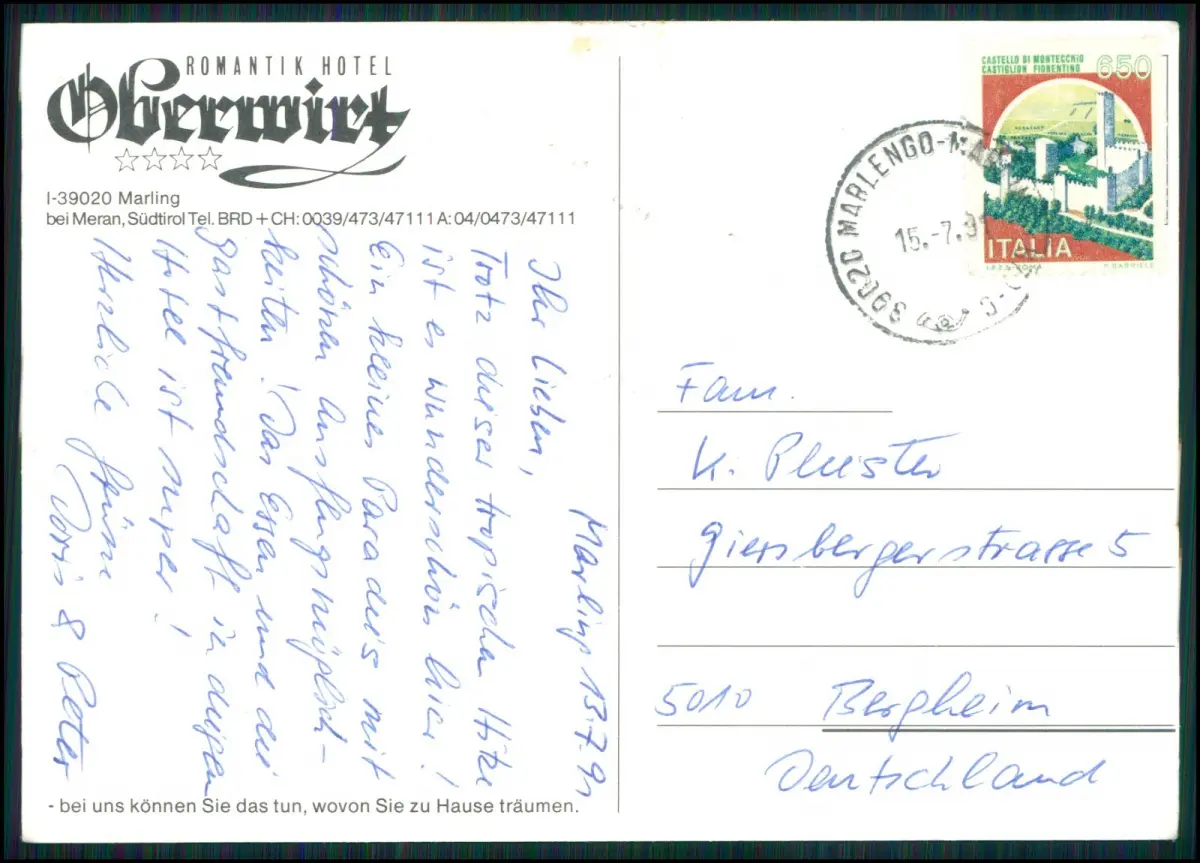 ROMANTIK HOTEL
Oberwirt
I-39020 Marling
bei Meran, Südtirol Tel. BRD + CH: 0039/473/47111 A: 04/0473/47111
Marling 13.7.91
Ihr Lieben,
Trotz dieser tropischen Hitze
ist es wunderschön hier!
Ein kleines Paradies mit
schönen Ausflugsmöglich-
keiten! Das Essen und die
Gastfreundschaft in diesem
Hotel ist super!
Herzliche Grüße
Doris & Peter
- bei uns können Sie das tun, wovon Sie zu Hause träumen.
CASTELLO DI MONTECCHIO
CASTIGLION FIORENTINO
650
ITALIA
I.P.Z.S. ROMA
39020 MARLENGO-MAR
15.-7.91
Fam.
K. Pleister
Giersbergerstrasse 5
5010 Bergheim
Deutschland